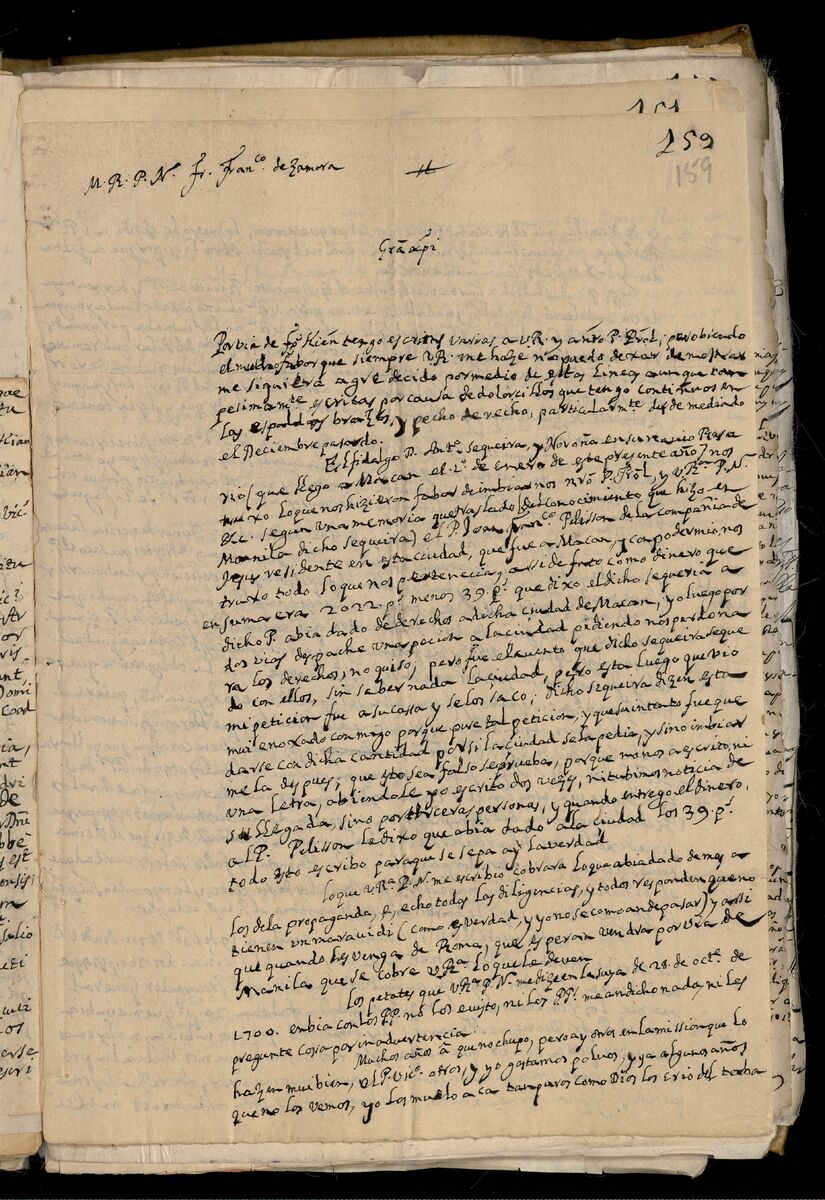 151
159
159
M. R. P. N. Fr. Franco. de Zamora
Por via de Fo Kien tengo escritas varias a V.R. y a nro P. Prol; pero biendo
el mucho fabor que siempre V.R. me haze no puedo dexar de mostrar
me siquiera agradecido por medio de estas lineas aunque tan
pesimamte escritas por causa de dolorcillos que tengo continuos en
las espaldas brazos, y pecho derecho, particularmte desde mediado
el Deciembre pasado.
El fidalgo D. Anto. sequeira, y Noroña en su navio Rosa
rio (que llego a Macan el 1o de enero de este presente año) nos
truxo lo que nos hizieron fabor de imbiarnos nro P. Prol, y VRa. P. N.
&c. segun una memoria que traslado (del conocimiento que hizo en
Manila dicho sequeira) el P. Joan Franco Pelisson de la compañia de
Jesus residente en esta ciudad, que fue a Macan, y con poder mio, nos
truxo todo lo que nos pertenecia, assi de frato como dinero que
en suma era 2022. ps. menos 39. ps. que dixo el dicho sequeria a
dicho P. abia dado de derechos a dicha ciudad de Macan, yo luego por
dos vias despache una peticion a la ciudad pidiendo nos perdona
ra los derechos, no quiso; pero fue el cuento que dicho sequeira se que
do con ellos, sin saber nada la ciudad, pero esta luego que vio
mi peticion fue a su cassa y se los saco; dicho sequeira dizen esta
mui enoxado conmigo porque puse tal peticion, y que su intento fue que
darse con dicha cantidad por si la ciudad se la pedia, y sino imbiar
me la despues; que esto sea falso se prueba, porque mo nos a escrito, ni
una letra, abiendole yo escrito dos vezes, ni tubimos noticia de
su llegada, sino por terceras personas, y quando entrego el dinero,
al P. Pelisson le dixo que abia dado a la ciudad los 39. ps.
todo esto escribo para que se sepa a y la verdad
lo que VRa. P. N. me escribio cobrara lo que abia dado de mas a
los de la propaganda, e, echo todas las diligencias, y todos responden que no
tienen un maravidi (como es verdad, y yo no se como an de pasar) y assi
que quando les venga de Roma, que esperan vendra por via de
Manila que se cobre VRa. lo que le deven
los petates que VRa. P. N. me dize en la suya de 28. de octe. de
1700. embia con los PP. no los e visto, ni los PPs. me an dicho nada, ni les
pregunte cossa por inadvertencia.
Muchos años a que no chupo, pero ay otros en la mission que lo
hazen mui bien, el P. Vico. otros, y yo gastamos polvos, y ya algunos años
que no los vemos, yo los muelo a ca tan puros como Dios los crio del taba